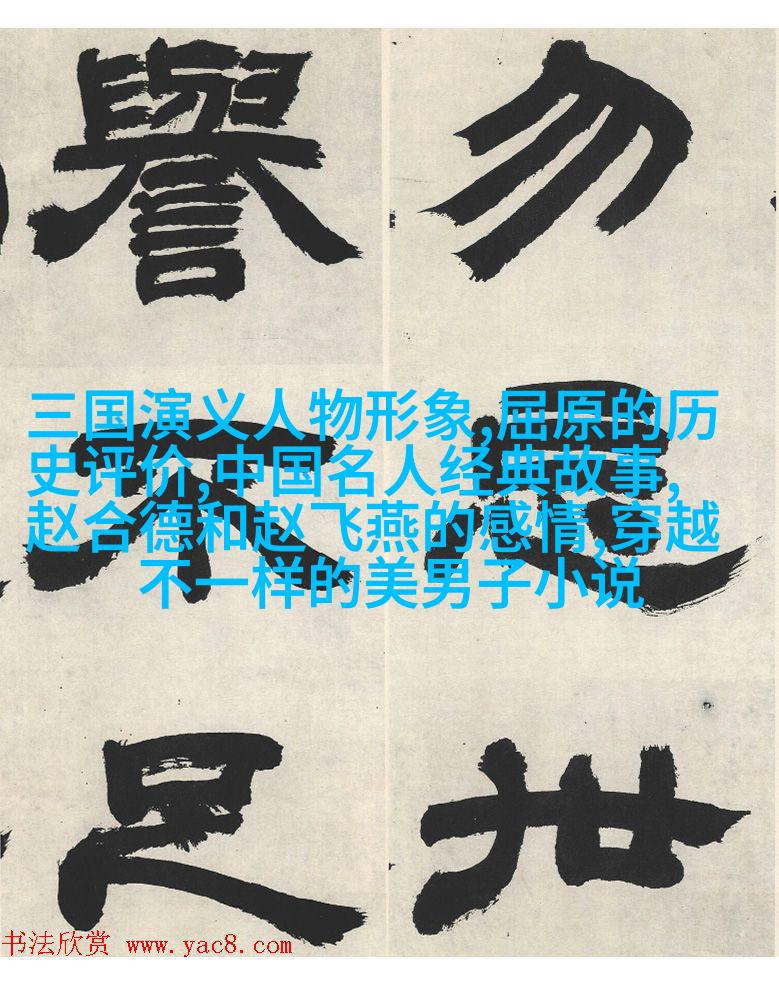 勿世
譽不足
三国演义人物形象,屈原的历
史评价,中国名人经典故事,
赵合德和赵飞燕的感情,穿越
不一样的美男子小说
书法欣赏 www.yac8.com